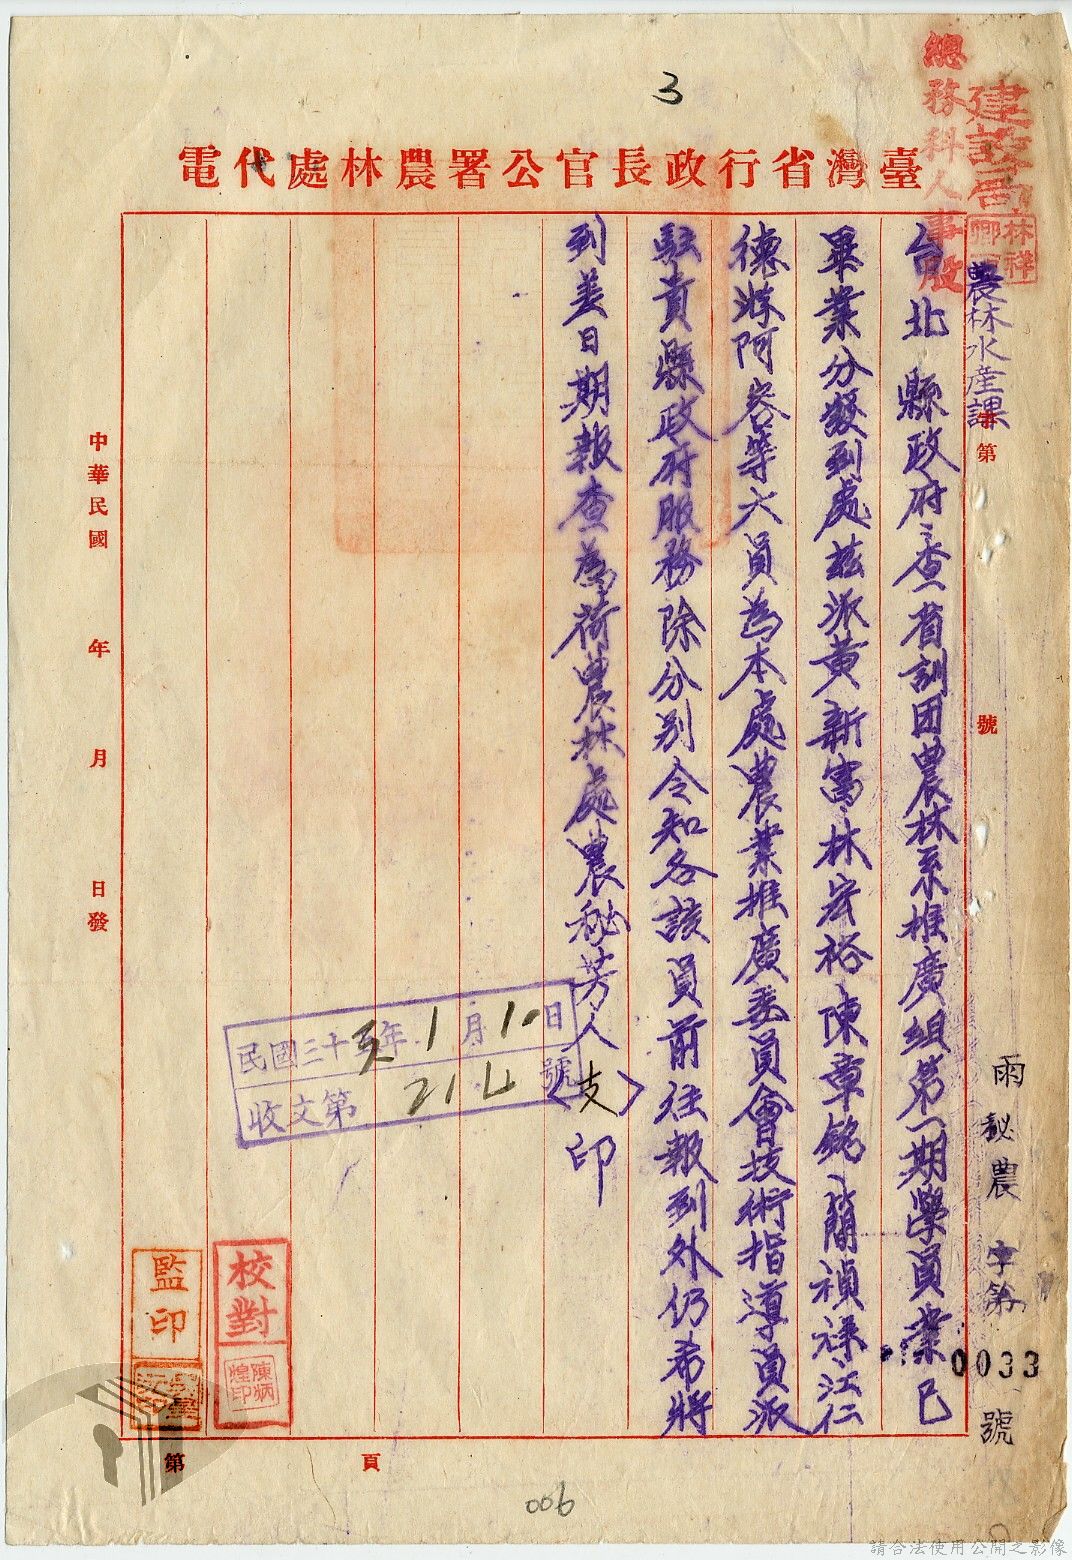 3
總務科人事股
建設局
林祥
農林水產課
臺灣省行政長官公署農林處代電
字第 號
雨秘農字第0033號
台北縣政府:查省訓团農林系推廣組第一期學員業已
畢業分發到處茲派黃新富、林宏裕陳章銘、簡禎祿、江仁
德游阿容等六員為本處農業推廣委員會技術指導員派
駐貴縣政府服務除分別令知各該員前往報到外仍希將
到差日期報查為荷農林處農秘芳人(支)印
民國三十五年1月10日
收文第214號
中華民國 年 月 日發
校對
陳炳煌印
監印
第 頁
006
請合法使用公開之影像